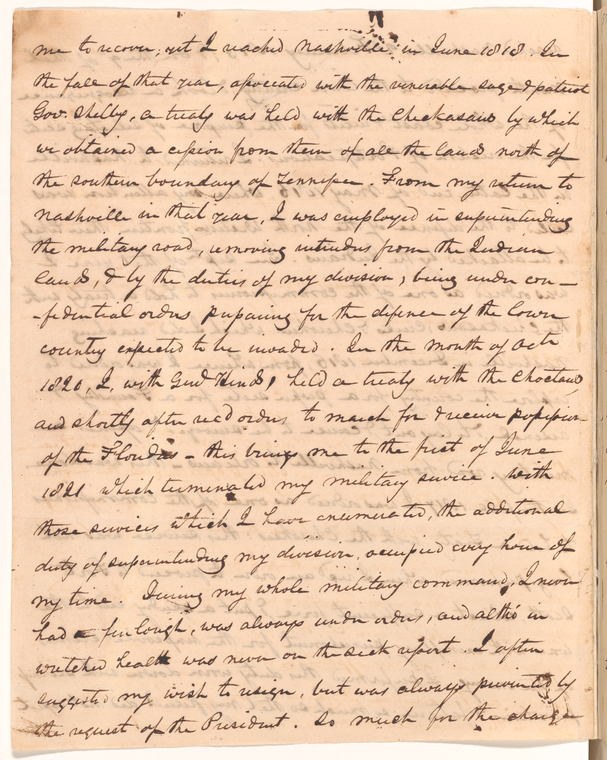 me to recover; yet I reached Nashville in June 1818. In
the fall of that year, associated with the venerable sage & patriot
Gov. Shelby, a treaty was held with the Chekasaws by which
we obtained a cession from them of all the land north of
the southern boundary of Tennessee. From my return to
Nashville in that year, I was employed in superintending
the military road, removing intruders from the Indian
land, & by the duties of my division, being under con-
-fidential orders preparing for the defence of the lower
country expected to be invaded. In the month of Octr
1820, I, with Genl Hinds, held a treaty with the Choctaws
and shortly after recd orders to march for & receive possession
of the Floridas - this brings me to the first of June
1821 which terminated my military service. With
those services which I have enumerated, the additional
duty of superintending my division, occupied every hour of
my time. During my whole military command, I never
had a furlough, was always under orders, and altho' in
wretched health was never on the sick report. I often
suggested my wish to resign, but was always prevented by
the request of the President. So much for the charge